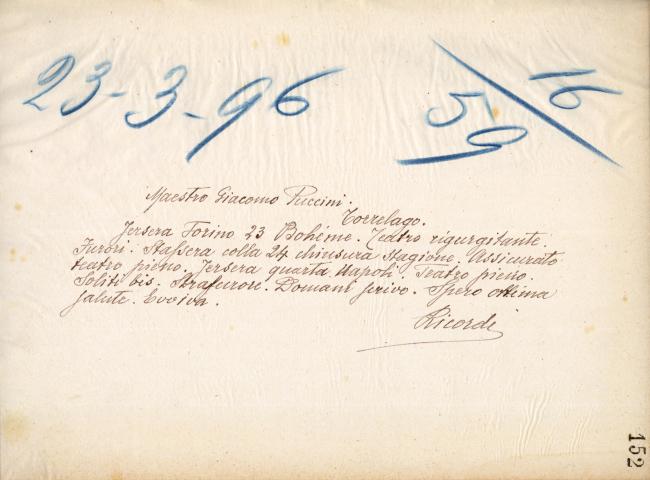 23-3-96
16
59
Maestro Giacomo Puccini.
Torrelago.
Jersera Torino 23 Bohéme. Teatro rigurgitante.
Furori. Stassera colla 24 chiusura stagione. Assicurato
teatro pieno. Jersera quarta Napoli. Teatro pieno.
Soliti bis. Strafurore. Domani scrivo. Spero ottima
salute. Evviva.
Ricordi
152